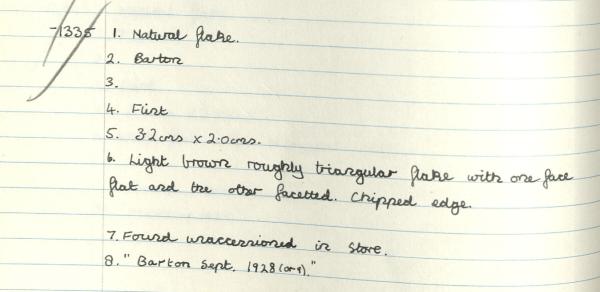 -1335 1. Natural flake.
2. Barton
3.
4. Flint
5. 3.2cms x 2.0cms.
6. Light brown roughly triangular flake with one face
flat and the other facetted. Chipped edge.
7. Found unaccessioned in store.
8. "Barton Sept. 1928 (or 9)."